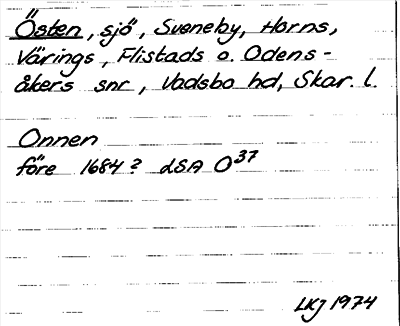 Östen, sjö, Sveneby, Horns,
Värings, Flistads o. Odens-
åkers snr, Vadsbo hd, Skar. l.
Onnen
före 1684? dSA O37
LKJ 1974